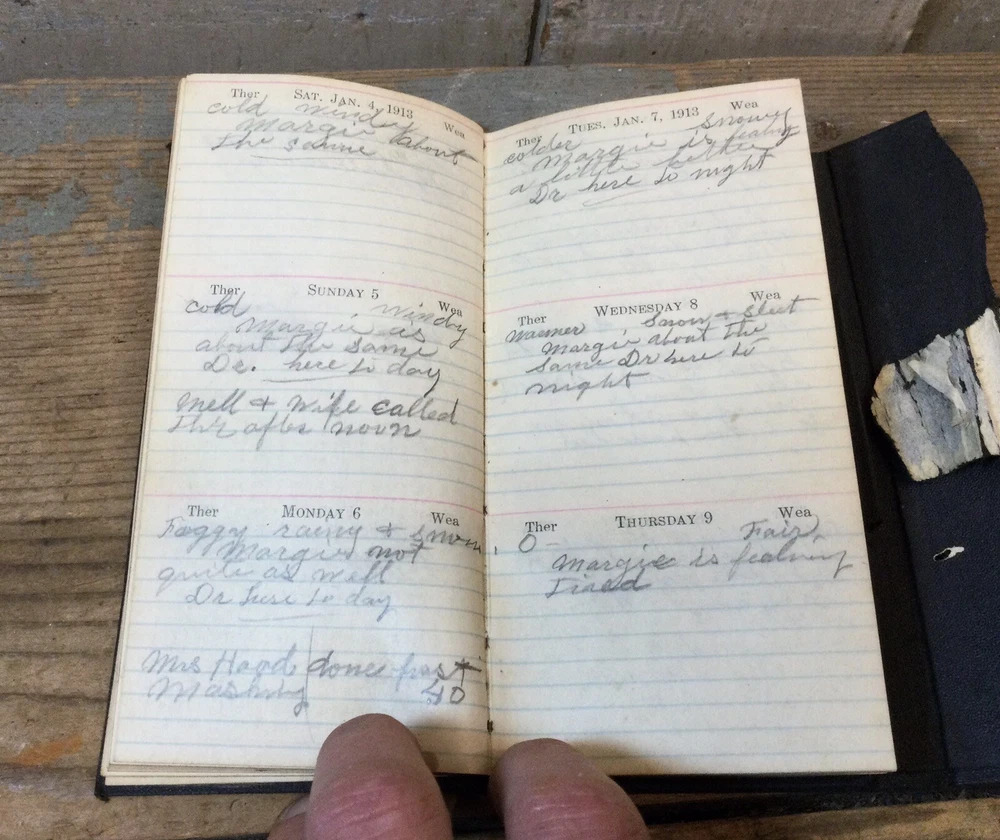 Ther SAT. JAN. 4, 1913 Wea
cold wind
Margie about
the same
Ther SUNDAY 5 Wea
cold windy
Margie is
about the same
Dr. here to day
Mell & wife called
this after noon
Ther MONDAY 6 Wea
Foggy rainy & snow
Margie not
quite as well
Dr here to day
Mrs Hood done first
Washing 40
Ther TUES. JAN. 7, 1913 Wea
colder Snowey
Margie is fealing
a little better
Dr here to night
Ther WEDNESDAY 8 Wea
warmer Snow & Sleet
Margie about the
same Dr here to
night
Ther THURSDAY 9 Wea
0 Fair
Margie is fealing
tired